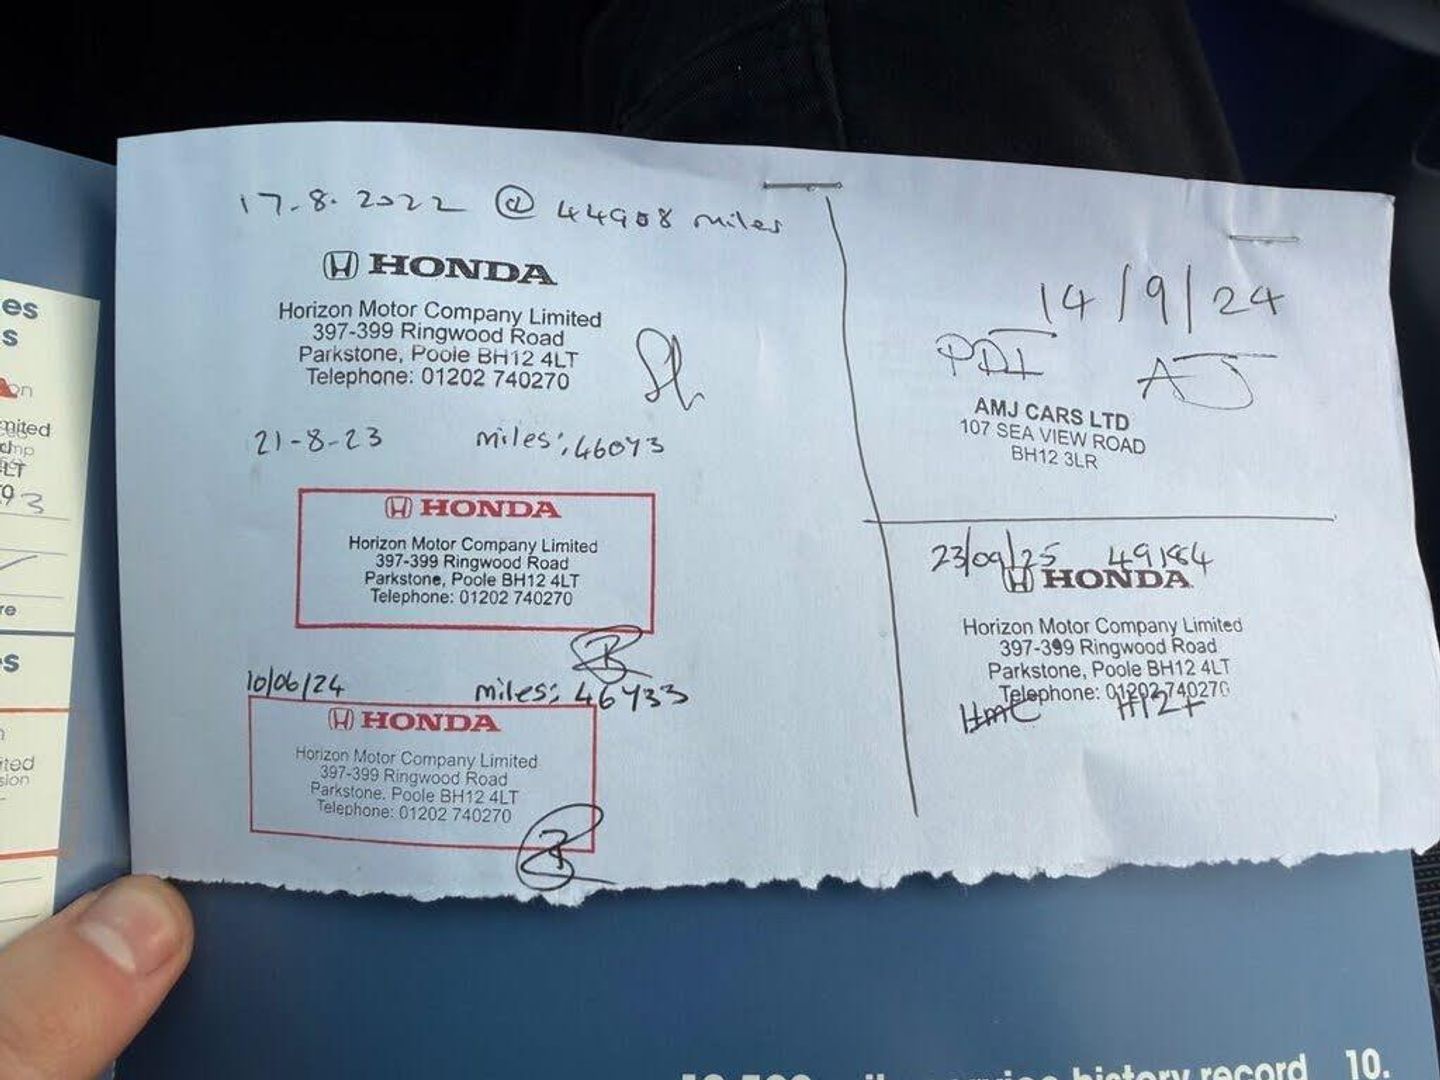 17-8-2022 @ 44908 miles
HONDA
Horizon Motor Company Limited
397-399 Ringwood Road
Parkstone, Poole BH12 4LT
Telephone: 01202 740270
21-8-23 miles: 46073
HONDA
Horizon Motor Company Limited
397-399 Ringwood Road
Parkstone, Poole BH12 4LT
Telephone: 01202 740270
10/06/24 miles: 46733
HONDA
Horizon Motor Company Limited
397-399 Ringwood Road
Parkstone, Poole BH12 4LT
Telephone: 01202 740270
14/9/24
PDI AJ
AMJ CARS LTD
107 SEA VIEW ROAD
BH12 3LR
23/09/25
HONDA
Horizon Motor Company Limited
397-399 Ringwood Road
Parkstone, Poole BH12 4LT
Telephone: 01202 740270
es
s
on
mited
LT
3
re
s
ited
sion
service history record 10.